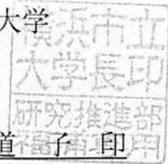 大学
横浜市立
大学長印
研究推進部
道 子 印